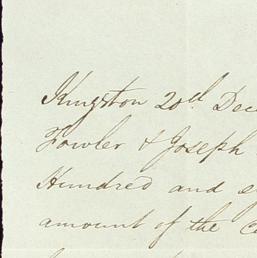 Kingston 20th Dec
Fowler & Joseph
Hundred and s
amount of the